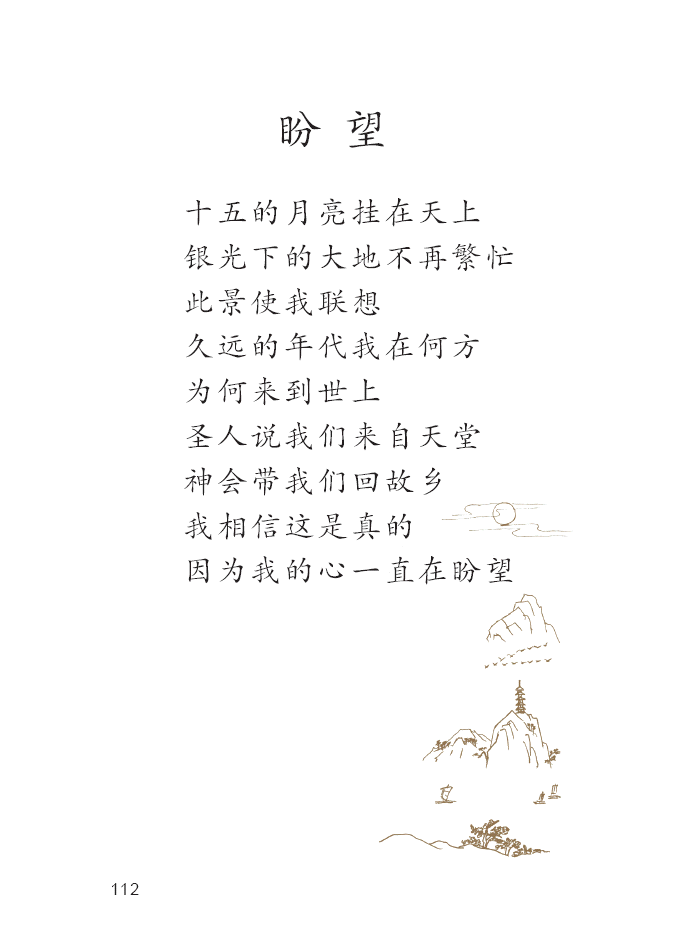 盼望
十五的月亮挂在天上
银光下的大地不再繁忙
此景使我联想
久远的年代我在何方
为何来到世上
圣人说我们来自天堂
神会带我们回故乡
我相信这是真的
因为我的心一直在盼望
112